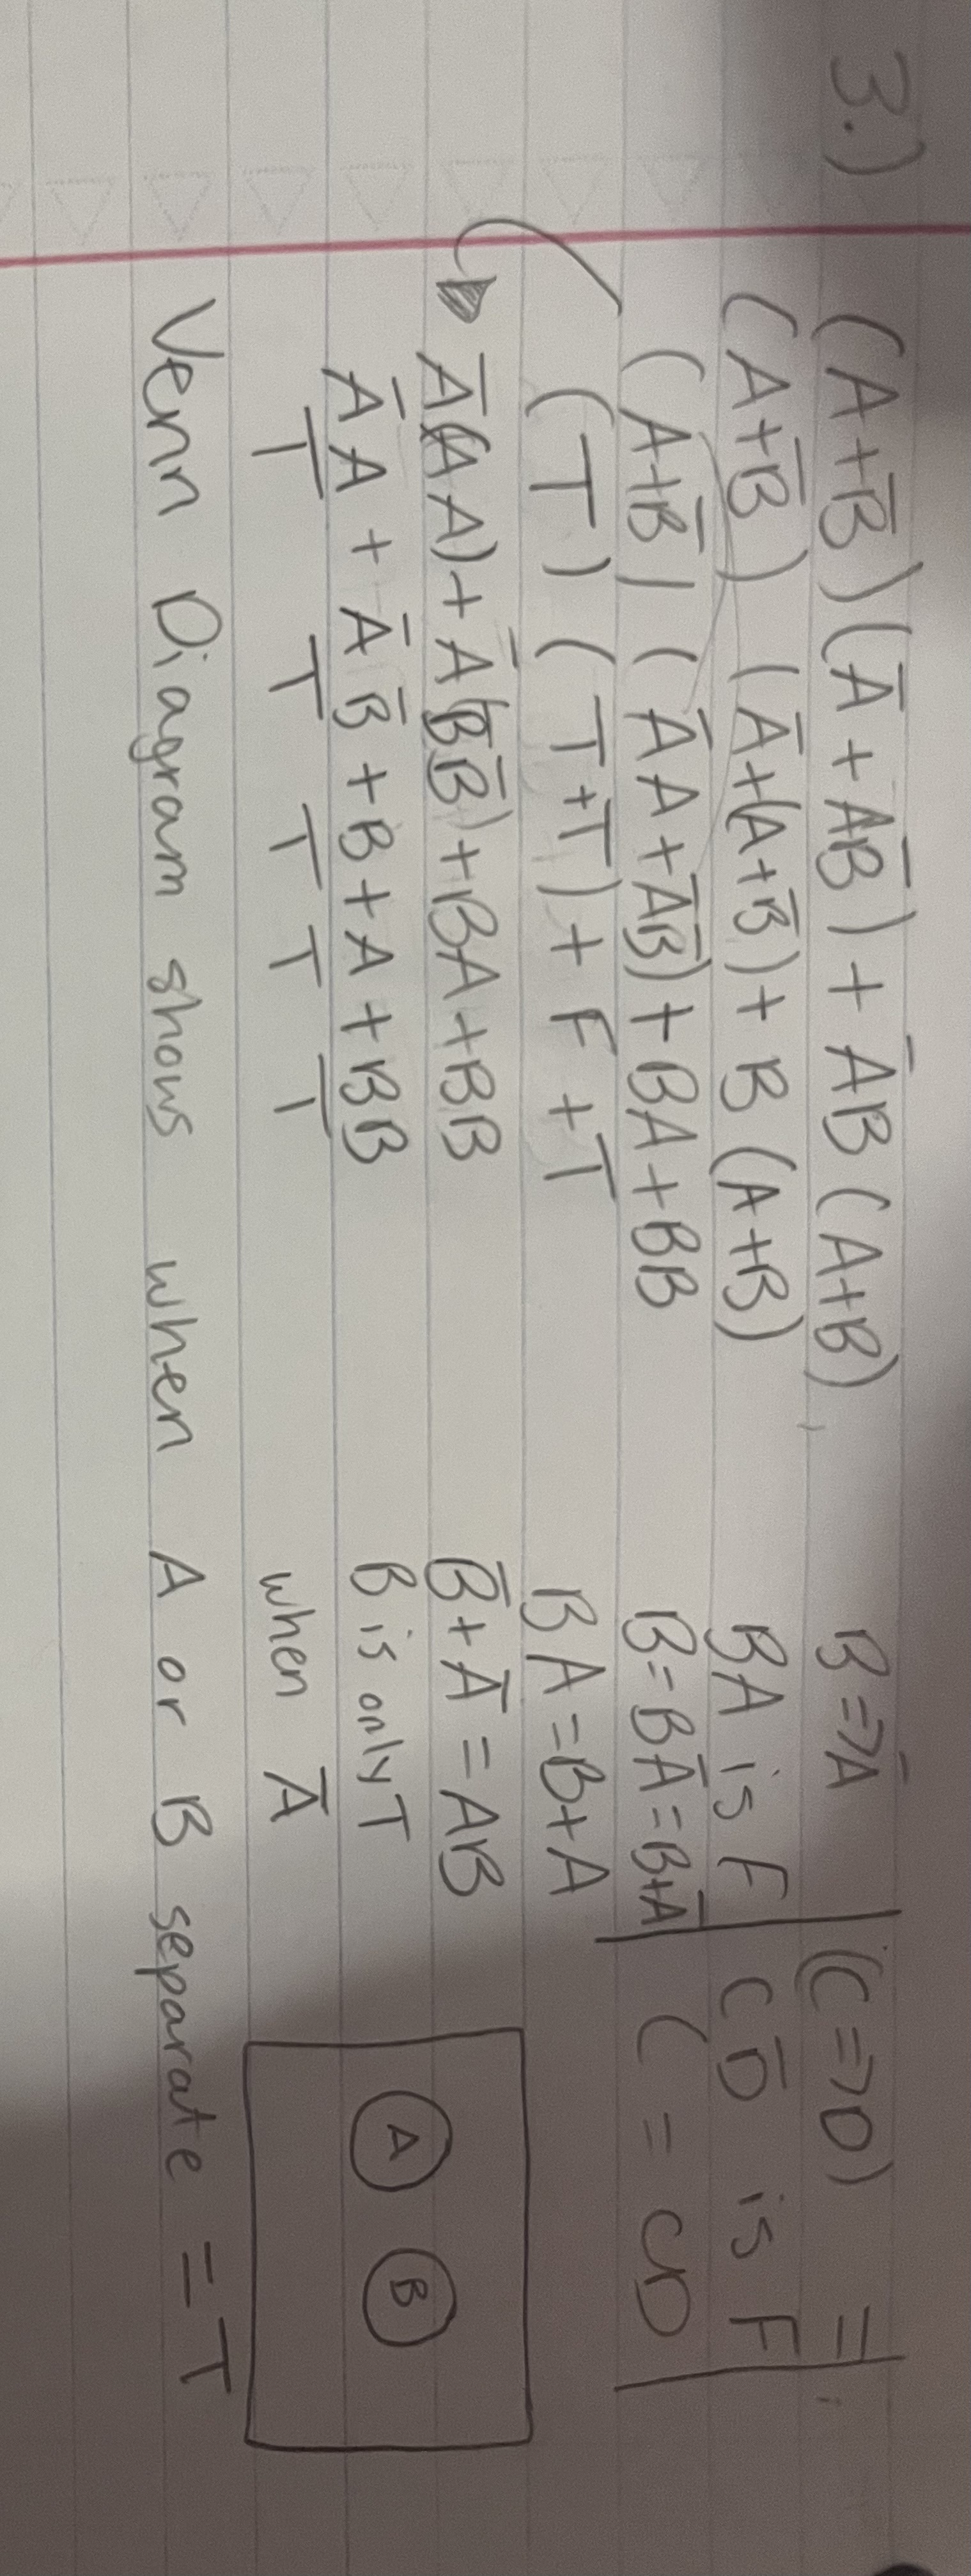 3.) (A+B̅)(A̅+AB̅)+A̅B(A+B)
(A+B̅) (A̅+(A+B̅)+B(A+B)
(A+B̅) (A̅A+A̅B̅)+BA+BB
(T) (T+T)+F+T
A̅(AA)+A̅(B̅B̅)+BA+BB
A̅A+A̅B̅+B+A+BB
T T T T T
B=>A̅
BA is F
B=BA̅=B+A̅
BA=B+A
B̅+A̅=AB
B is only T
when A̅
(C=>D) =
CD̅ is F
C = CD
A B
Venn Diagram shows when A or B separate = T